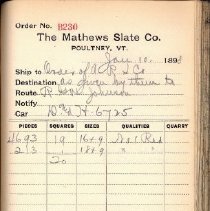 Order No. 8230
The Mathews Slate Co.
POULTNEY, VT.
Jan. 10. 189
Ship to Order of A R S Co
Destination as given by them to
Route
Notify
Car D&H 6725
PIECES SQUARES SIZES QUALITIES QUARRY
19 16x9 No 1 Red
213 18x9 " "
20